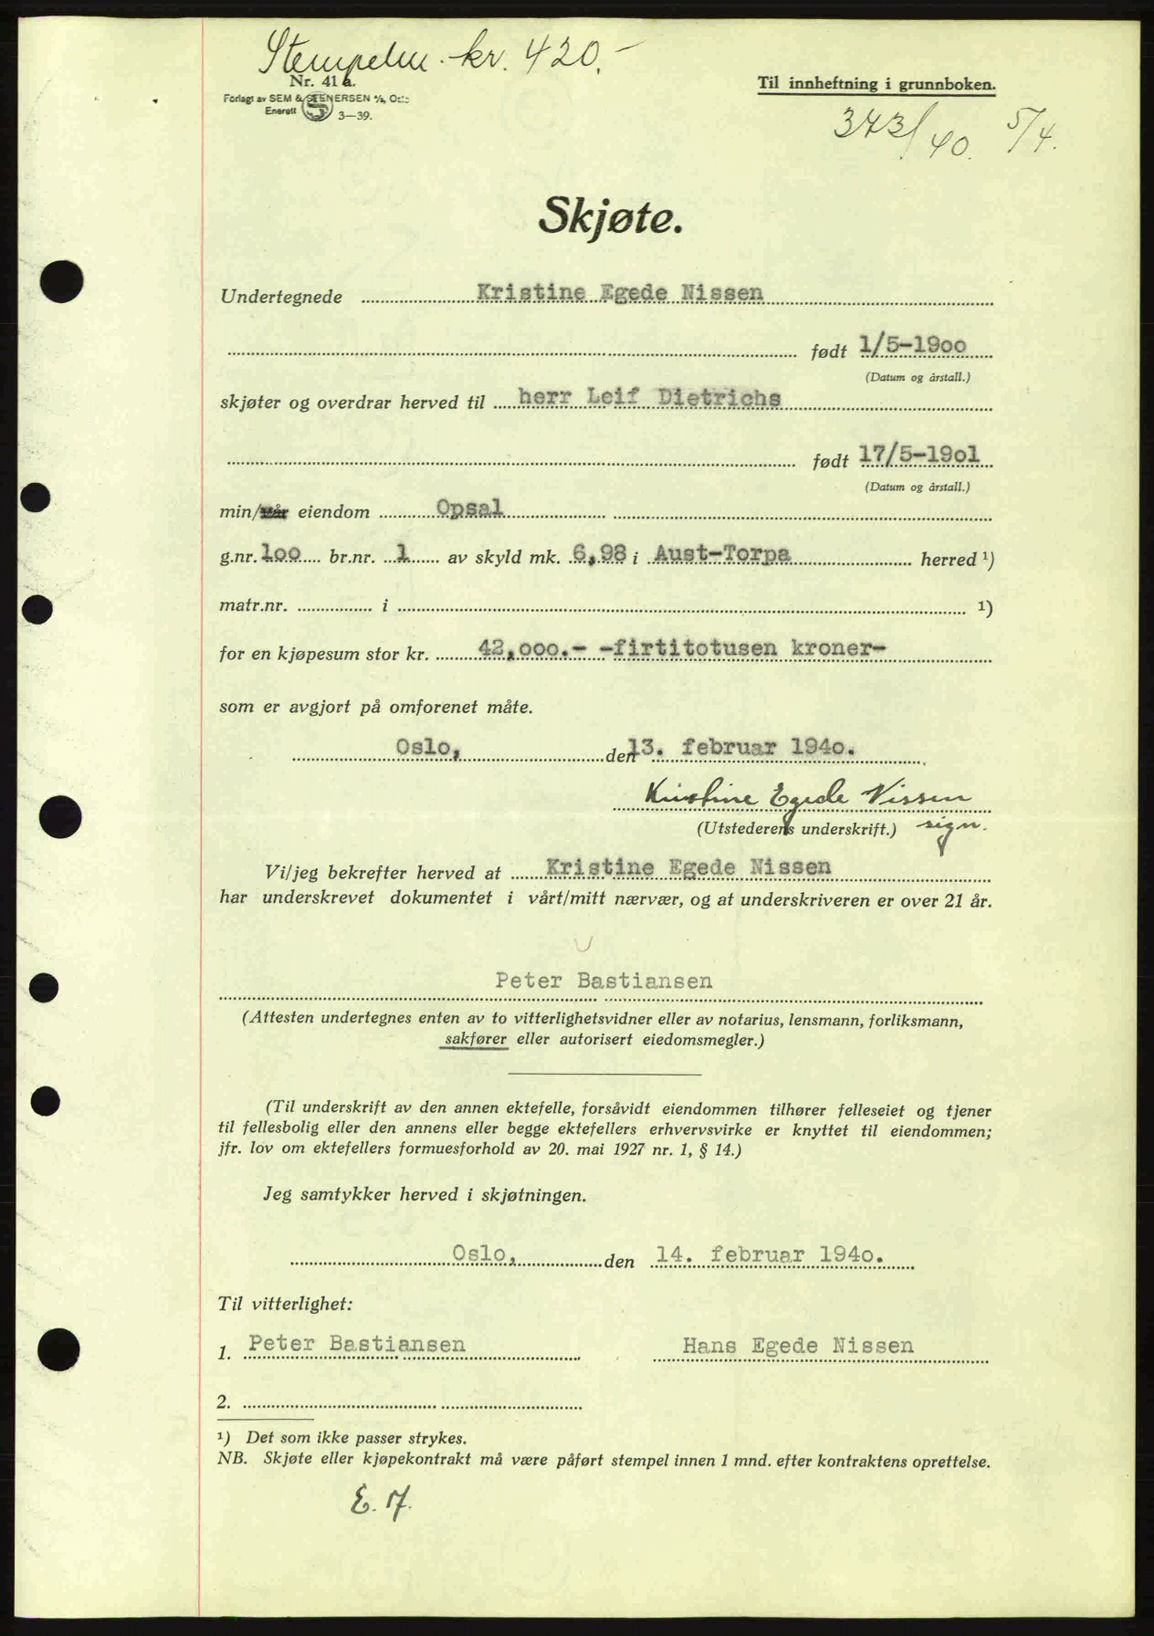 Stempelm. kr. 420,-
Nr. 41 a.
Til innheftning i grunnboken.
Forlagt av SEM & STENERSEN A/S, Oslo
Enerett 3—39.
373/40. 5/4.
Skjøte.
Undertegnede Kristine Egede Nissen
født 1/5-1900
(Datum og årstall.)
skjøter og overdrar herved til herr Leif Dietrichs
født 17/5-1901
(Datum og årstall.)
min/vår eiendom Opsal
g.nr. 100 br.nr. 1 av skyld mk. 6,98 i Aust-Torpa herred ¹)
matr.nr. i ¹)
for en kjøpesum stor kr. 42,000.- -firtitotusen kroner-
som er avgjort på omforenet måte.
Oslo, den 13. februar 1940.
Kristine Egede Nissen
(Utstederens underskrift.) sign.
Vi/jeg bekrefter herved at Kristine Egede Nissen
har underskrevet dokumentet i vårt/mitt nærvær, og at underskriveren er over 21 år.
Peter Bastiansen
(Attesten undertegnes enten av to vitterlighetsvidner eller av notarius, lensmann, forliksmann,
sakfører eller autorisert eiedomsmegler.)
(Til underskrift av den annen ektefelle, forsåvidt eiendommen tilhører felleseiet og tjener
til fellesbolig eller den annens eller begge ektefellers erhvervsvirke er knyttet til eiendommen;
jfr. lov om ektefellers formuesforhold av 20. mai 1927 nr. 1, § 14.)
Jeg samtykker herved i skjøtningen.
Oslo, den 14. februar 1940.
Til vitterlighet:
1. Peter Bastiansen Hans Egede Nissen
2.
¹) Det som ikke passer strykes.
NB. Skjøte eller kjøpekontrakt må være påført stempel innen 1 mnd. efter kontraktens oprettelse.